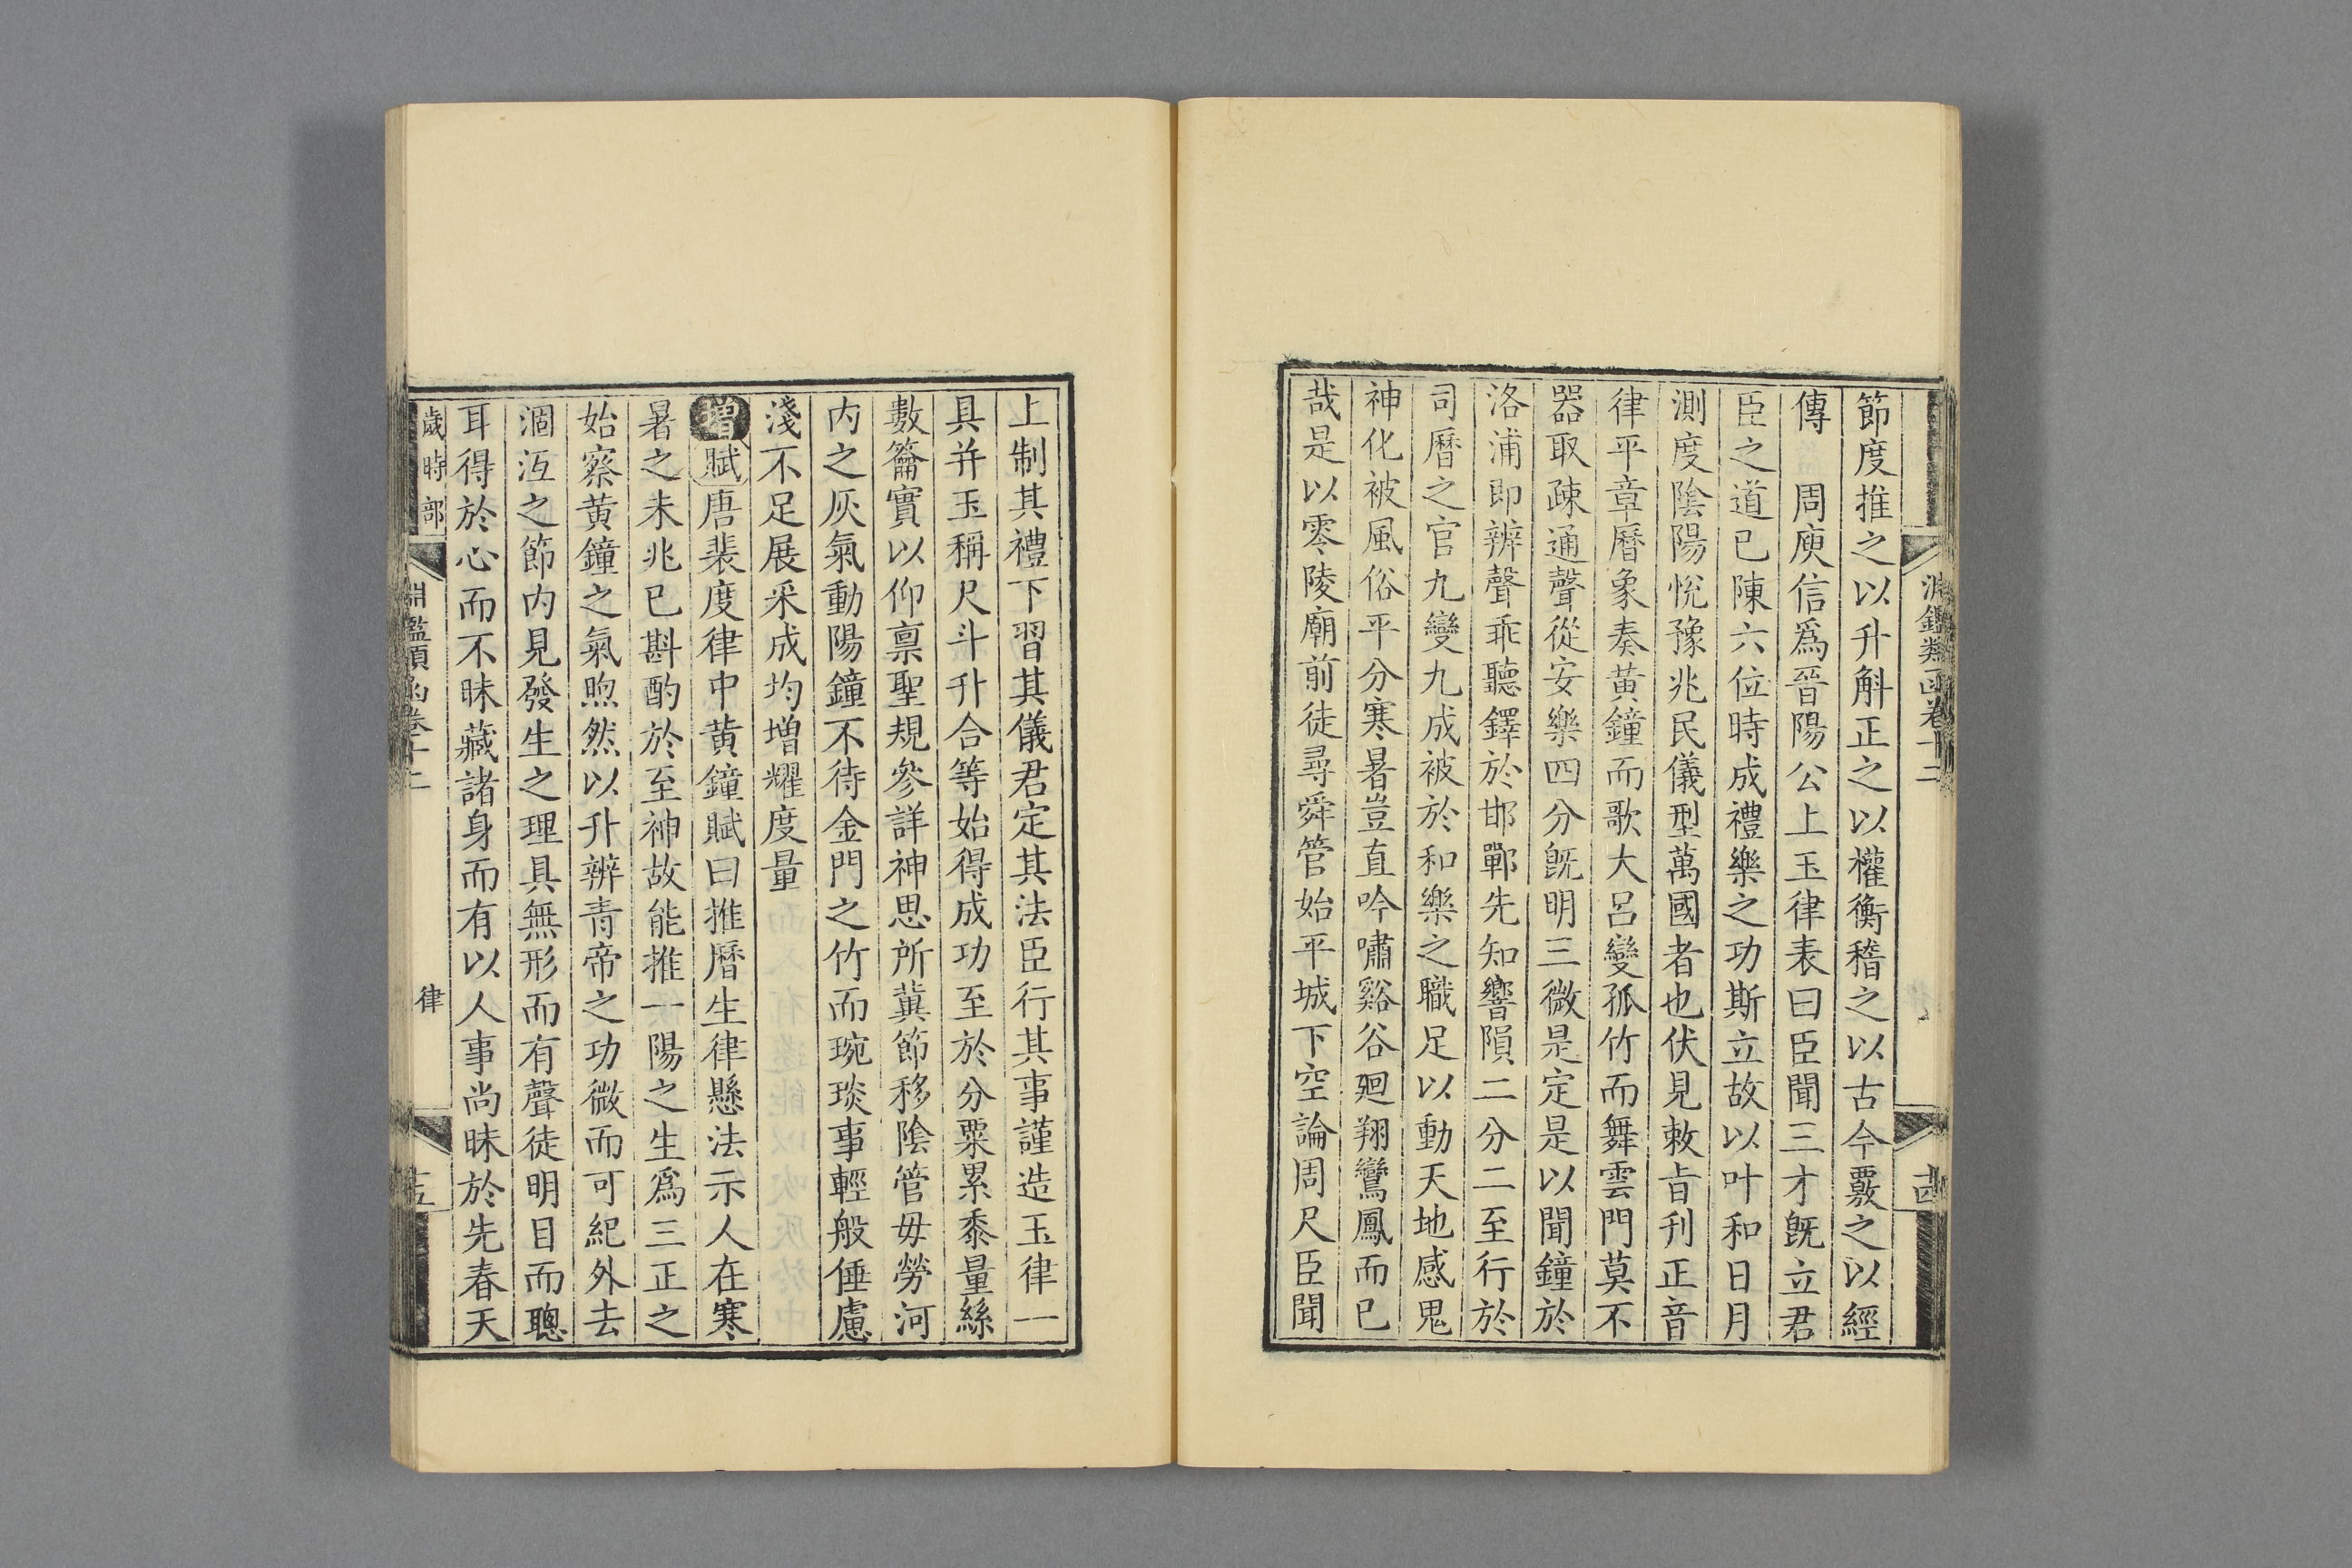 淵鑑類函卷十二
十四
節度推之以升斛正之以權衡稽之以古今覈之以經
傳　周庾信爲晉陽公上玉律表曰臣聞三才旣立君
臣之道已陳六位時成禮樂之功斯立故以叶和日月
測度陰陽悅豫兆民儀型萬國者也伏見敕旨刋正音
律平章曆象奏黃鐘而歌大呂變孤竹而舞雲門莫不
器取疎通聲從安樂四分旣明三微是定是以聞鐘於
洛浦即辨聲乖聽鐸於邯鄲先知響隕二分二至行於
司曆之官九變九成被於和樂之職足以動天地感鬼
神化被風俗平分寒暑豈直吟嘯谿谷廻翔鸞鳳而已
哉是以零陵廟前徒尋舜管始平城下空論周尺臣聞
上制其禮下習其儀君定其法臣行其事謹造玉律一
具并玉稱尺斗升合等始得成功至於分粟累黍量絲
數籥實以仰禀聖規參詳神思所冀節移陰管毋勞河
內之灰氣動陽鐘不待金門之竹而琬琰事輕般倕慮
淺不足展采成均增耀度量
增賦唐裴度律中黃鐘賦曰推曆生律懸法示人在寒
暑之未兆已斟酌於至神故能推一陽之生爲三正之
始察黃鐘之氣煦然以升辨青帝之功微而可紀外去
涸沍之節內見發生之理具無形而有聲徒明目而聰
耳得於心而不昧藏諸身而有以人事尚昧於先春天
歲時部
淵鑑類函卷十二
律
十五